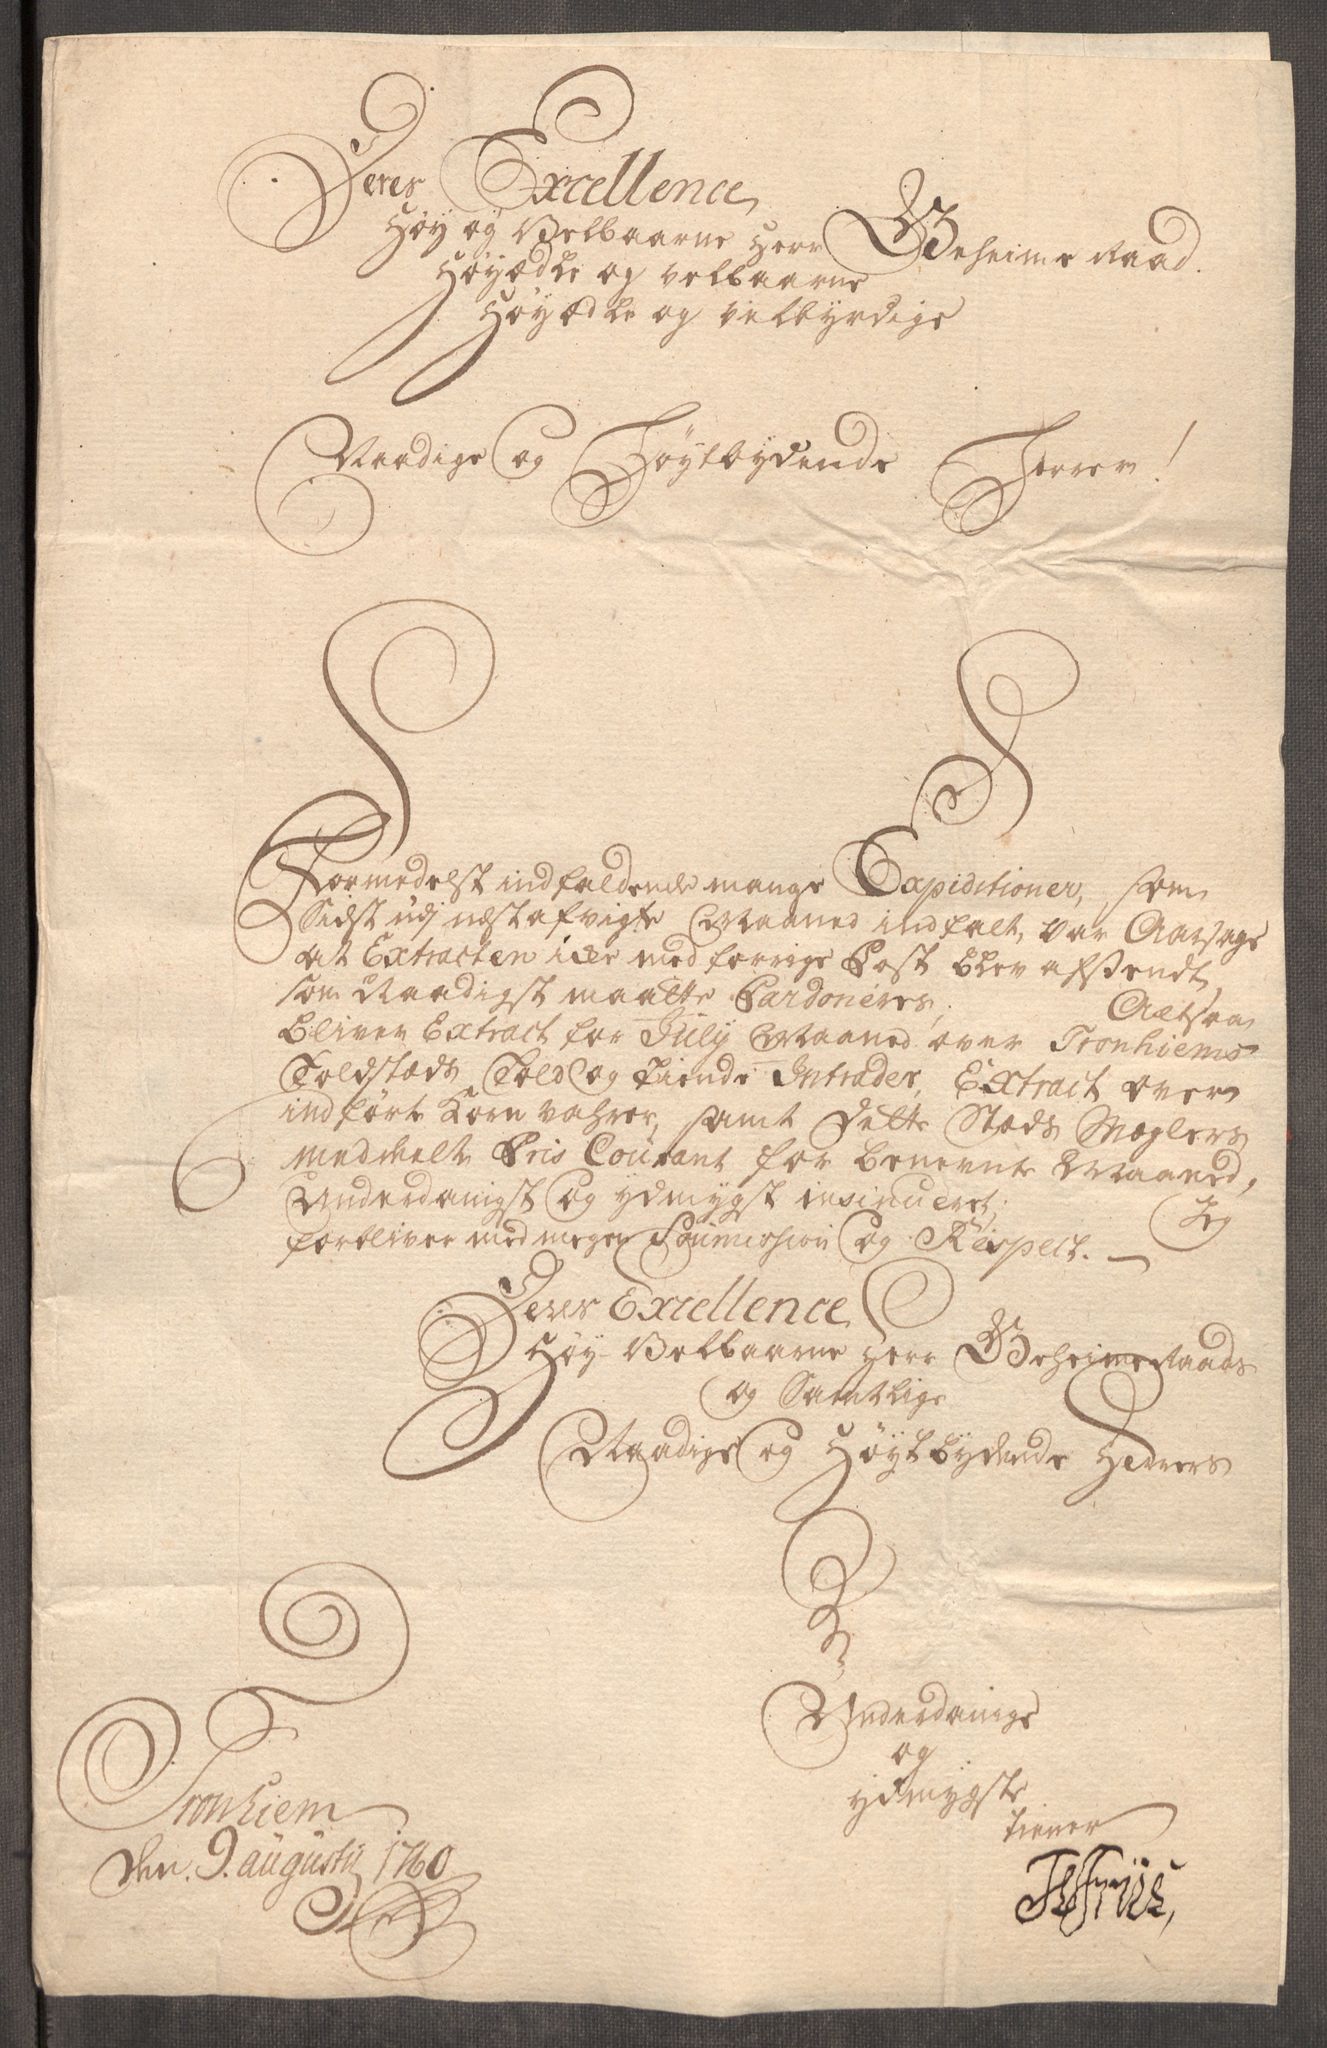 Deres Excellence
Høy og Velbaarne Herr Geheime Raad.
Høyædle og velbaarne
Høyædle og velbyrdige
Naadige og Høytbydende Herrer!
Formedelst indfaldende mange Expeditioner, som
Sidst udj næst afvigte Maaned indfalt, var Aarsage
at Extracten icke med forrige Post blev afsendt,
som Naadigst maatte Pardoneres; Altsaa
bliver Extract for July Maaned over Tronhiems
Toldstæds Told og Tiende Intrader, Extract over
indførte Korn Vahrer, samt dette Stæds Mæglers
meddeelte Pris Courant for benevnte Maaned,
Underdanigst og ydmygst insinueret; Jeg
forbliver med megen Soumission og Respect.
Deres Excellence
Høy Velbaarne Herr Geheime Raads
og Samtlige
Naadige og Høyt bydende Herrers
Underdanige
og
ydmygste
tiener
Tronhiem
den. 9. augusti 1760